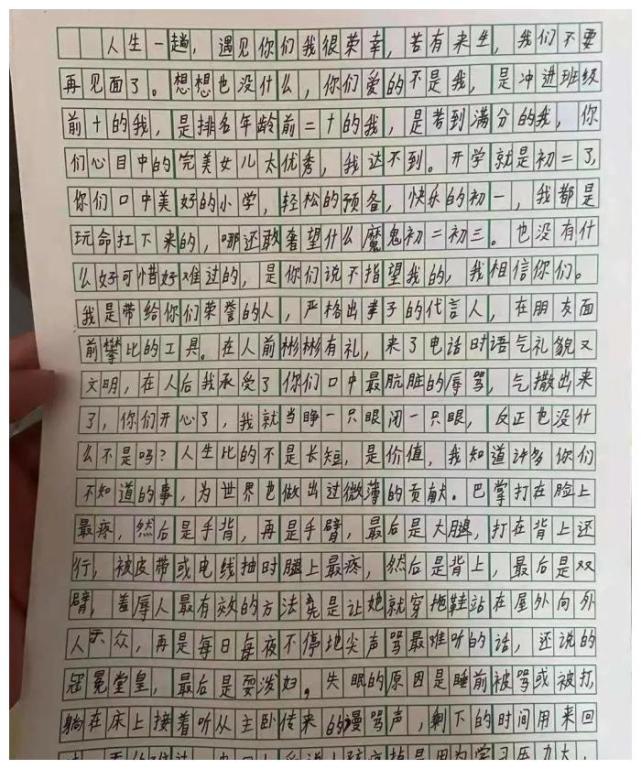 人生一趟，遇见你们我很荣幸，若有来生，我们不要
再见面了。想想也没什么，你们爱的不是我，是冲进班级
前十的我，是排名年龄前二十的我，是考到满分的我，你
们心目中的完美女儿太优秀，我达不到。开学就是初二了，
你们口中美好的小学，轻松的预备，快乐的初一，我都是
玩命扛下来的，哪还敢奢望什么魔鬼初二初三。也没有什
么好可惜好难过的，是你们说不指望我的，我相信你们。
我是带给你们荣誉的人，严格出孝子的代言人，在朋友面
前攀比的工具。在人前彬彬有礼，来了电话时语气礼貌又
文明，在人后我承受了你们口中最肮脏的辱骂，气撒出来
了，你们开心了，我就当睁一只眼闭一只眼，反正也没什
么不是吗？人生比的不是长短，是价值，我知道许多你们
不知道的事，为世界也做出过微薄的贡献。巴掌打在脸上
最疼，然后是手背，再是手臂，最后是大腿，打在背上还
行，被皮带或电线抽时腿上最疼，然后是背上，最后是双
臂，羞辱人最有效的方法竟是让她就穿拖鞋站在屋外向外
人示众，再是每日每夜不停地尖声骂最难听的话，还说的
冠冕堂皇，最后是耍泼妇。失眠的原因是睡前被骂或被打，
躺在床上接着听从主卧传来的谩骂声，剩下的时间用来回
是因为学习压力大，